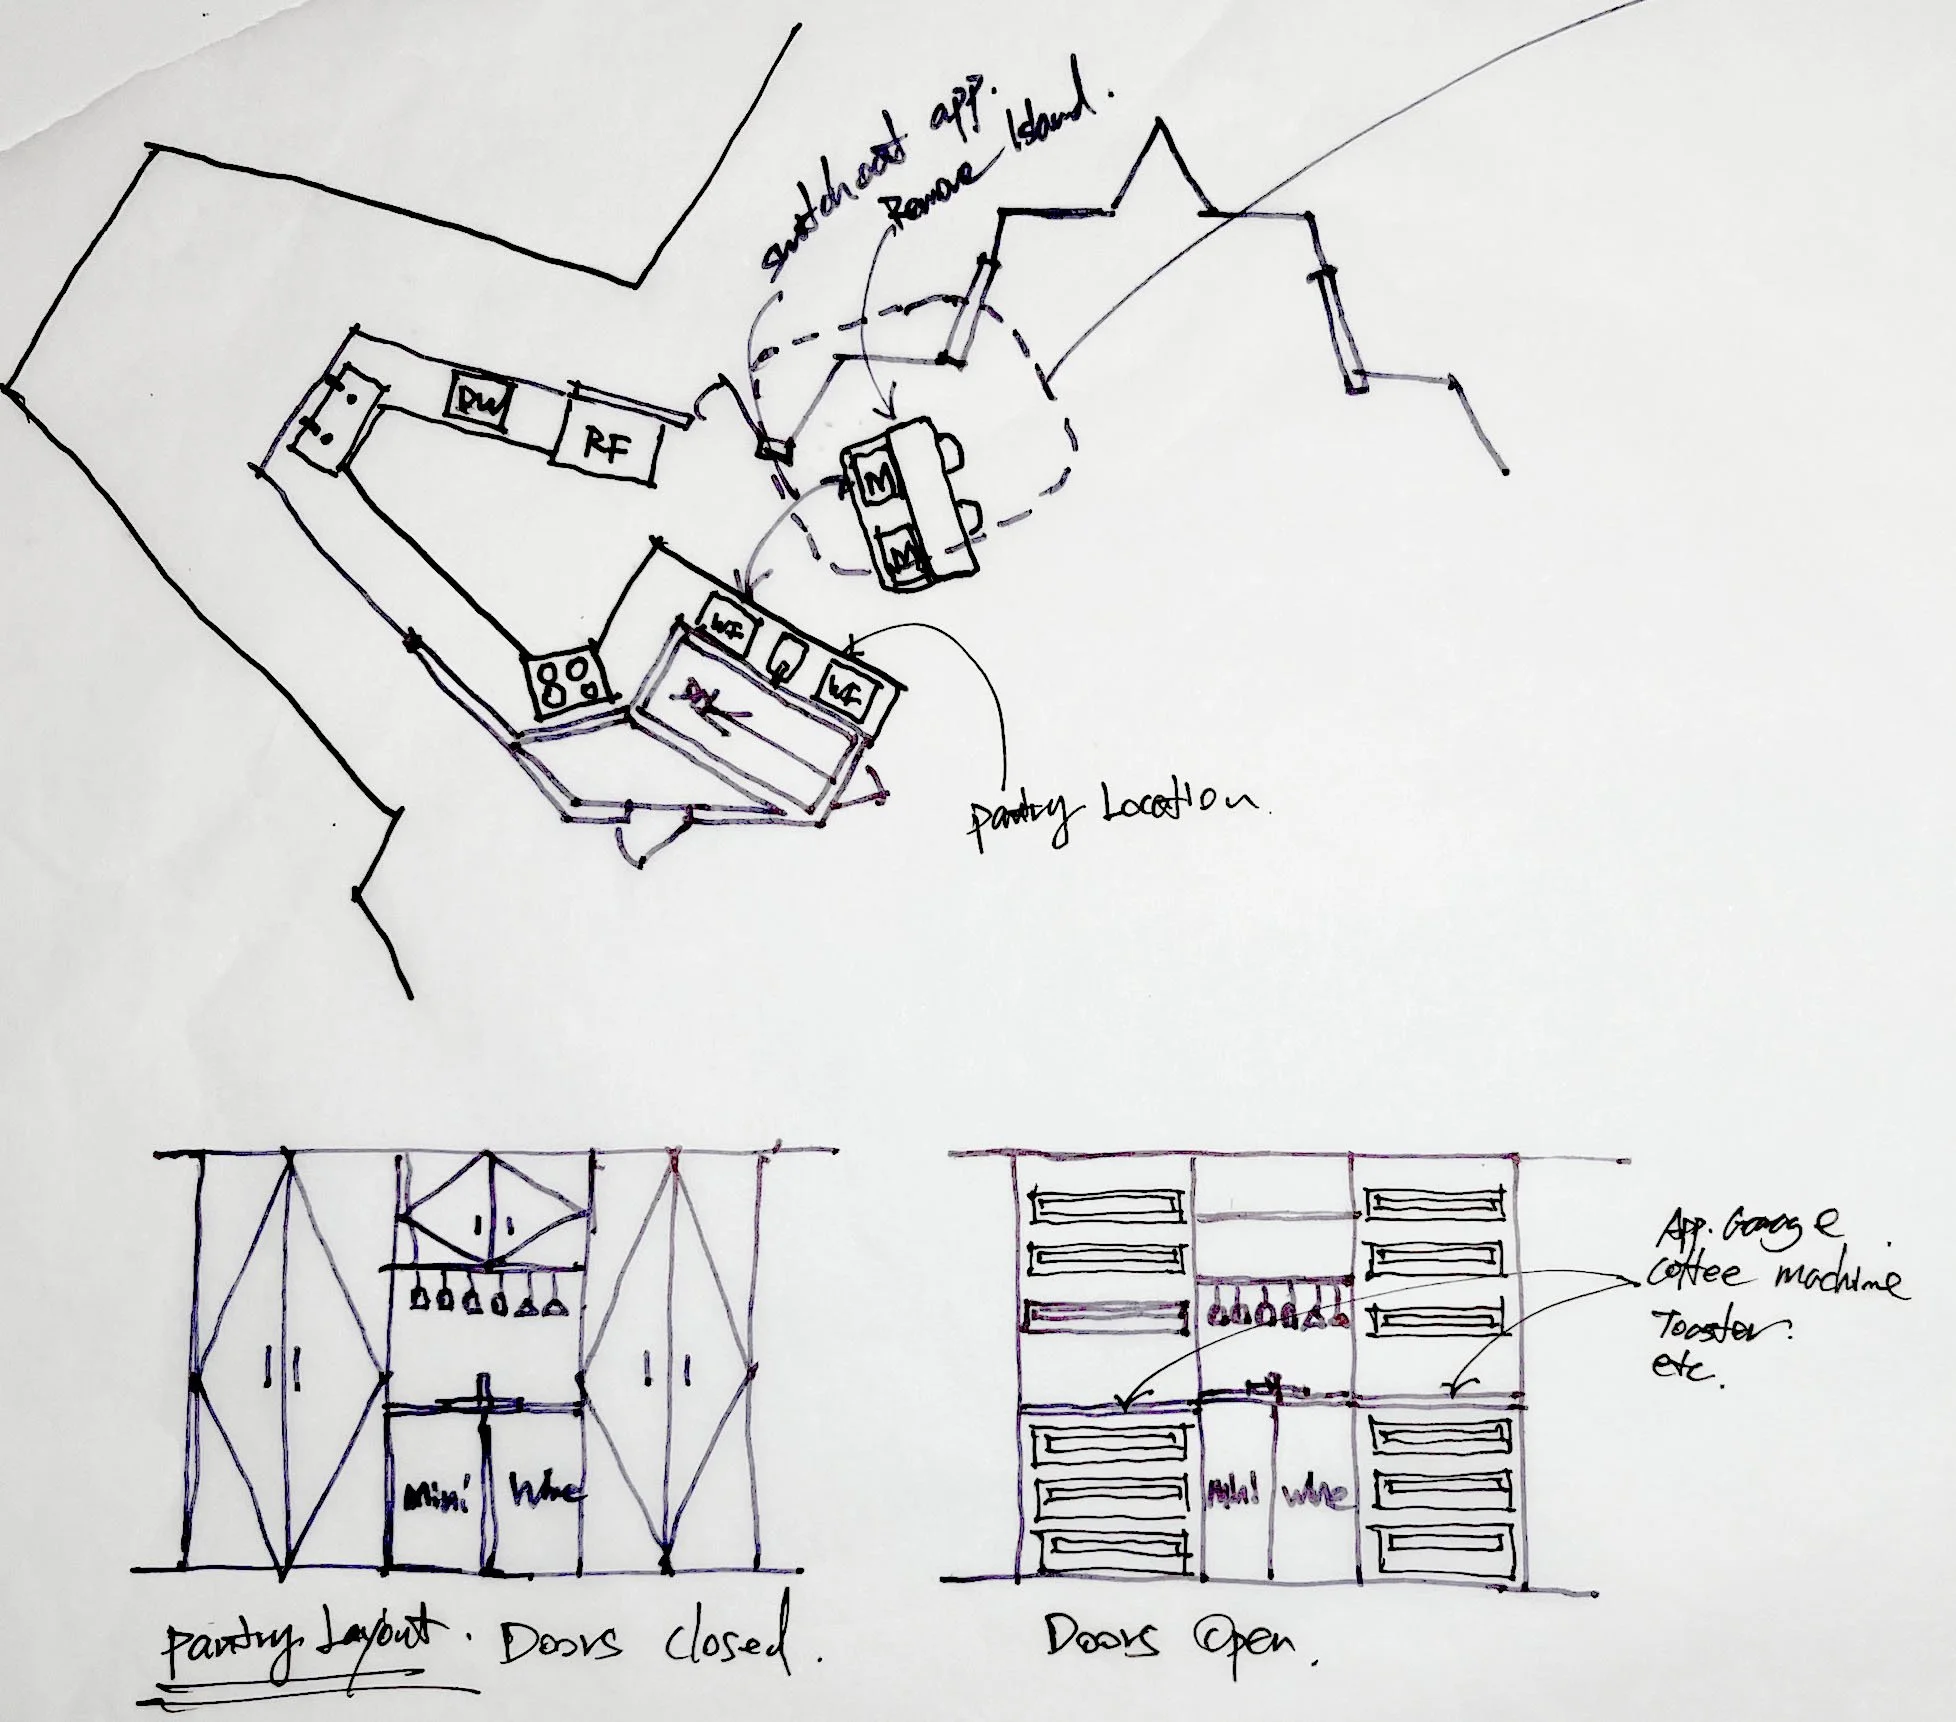 app.
Remove Island.
DW
RF
M
M
Pantry Location.
Mini
Wine
Mini
wine
App. Garage
Coffee machine
Toaster.
etc.
Pantry Layout. Doors Closed.
Doors Open.